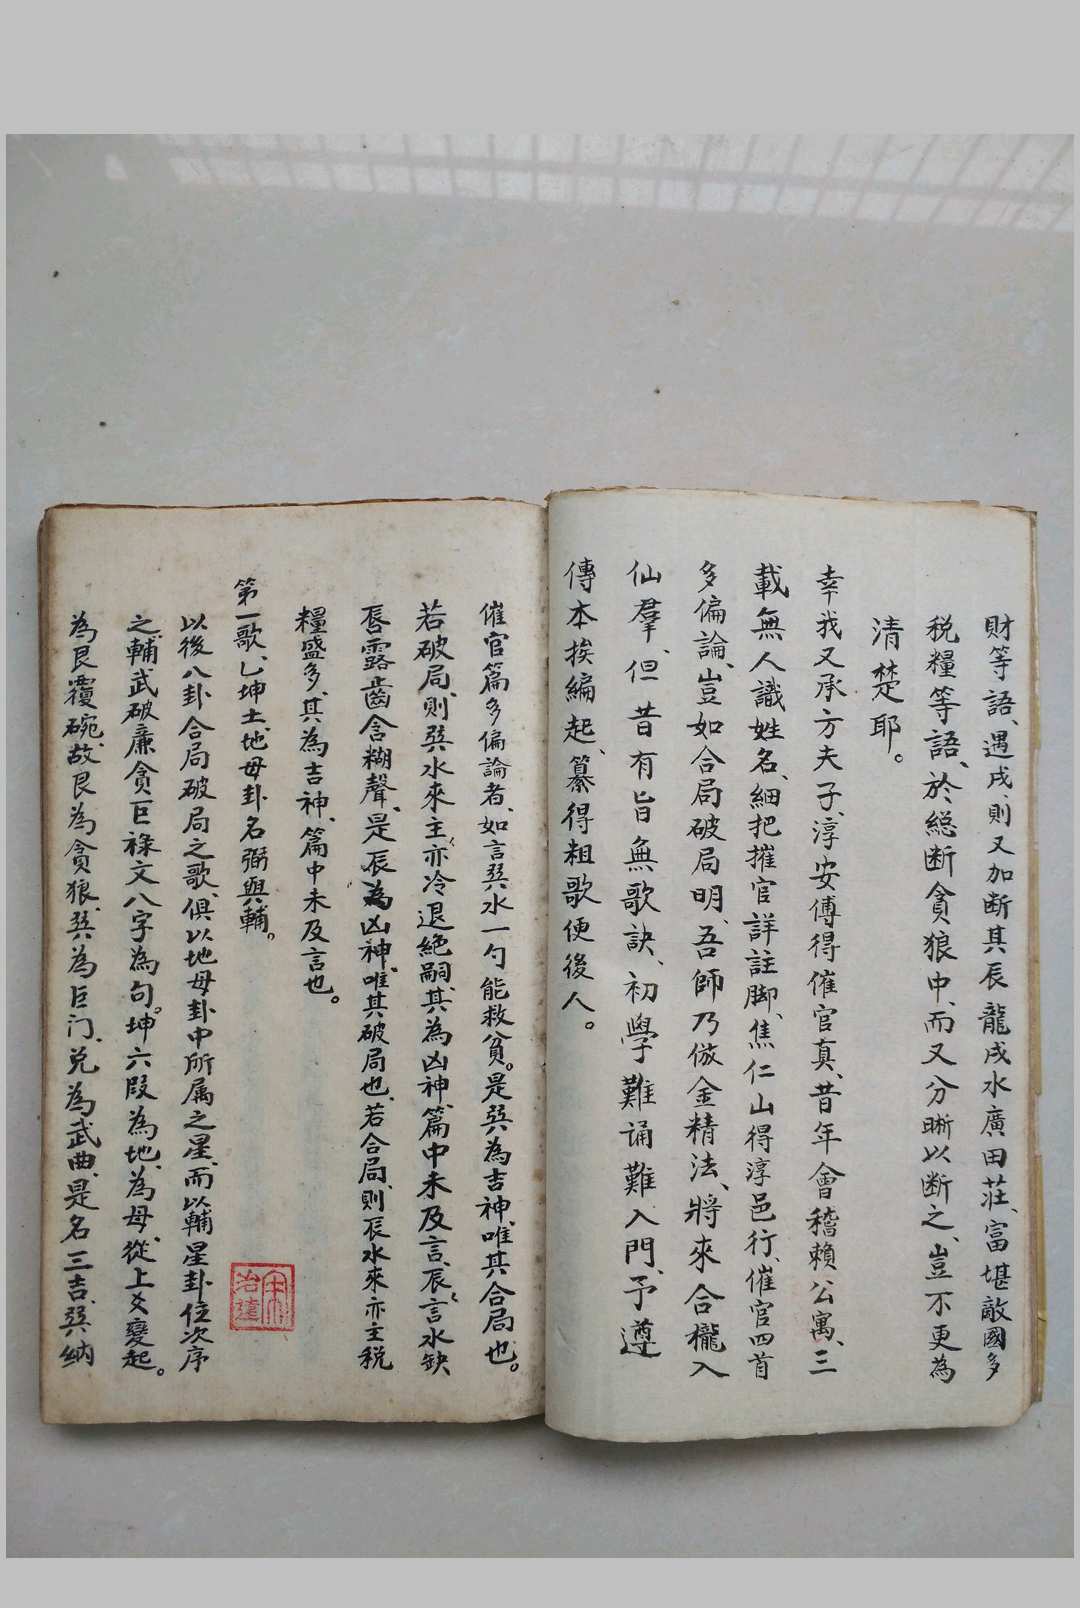 財等語、遇戌、則又加断其辰龍戌水廣田莊、富堪敵國多
税糧等語、於總断貪狼中、而又分晰以断之、豈不更為
清楚耶。
幸我又承方夫子、淳安傳得催官真、昔年會稽賴公寓、三
載無人識姓名、細把摧官詳註脚、焦仁山得淳邑行、催官四首
多偏論、豈如合局破局明、吾師乃倣金精法、將來合櫳入
仙羣、但昔有旨無歌訣、初學難誦難入門、予遵
傳本挨編起、纂得粗歌便後人。
催官篇多偏論者、如言巽水一勺能救貧。是巽為吉神、唯其合局也。
若破局、則巽水來主亦冷退絶嗣、其為凶神、篇中未及言、辰、言水缺
唇露齒含糊聲、是辰為凶神、唯其破局也、若合局、則辰水來亦主税
糧盛多、其為吉神、篇中未及言也。
第一歌、乙坤土、地母卦名弼與輔。
以後八卦合局破局之歌、俱以地母卦中所属之星、而以輔星卦位次序
之、輔武破廉貪巨祿文八字為句。坤六段為地、為母、從上爻變起。
為艮覆碗、故艮為貪狼、巽為巨门、兌為武曲、是名三吉、巽納
宋治達